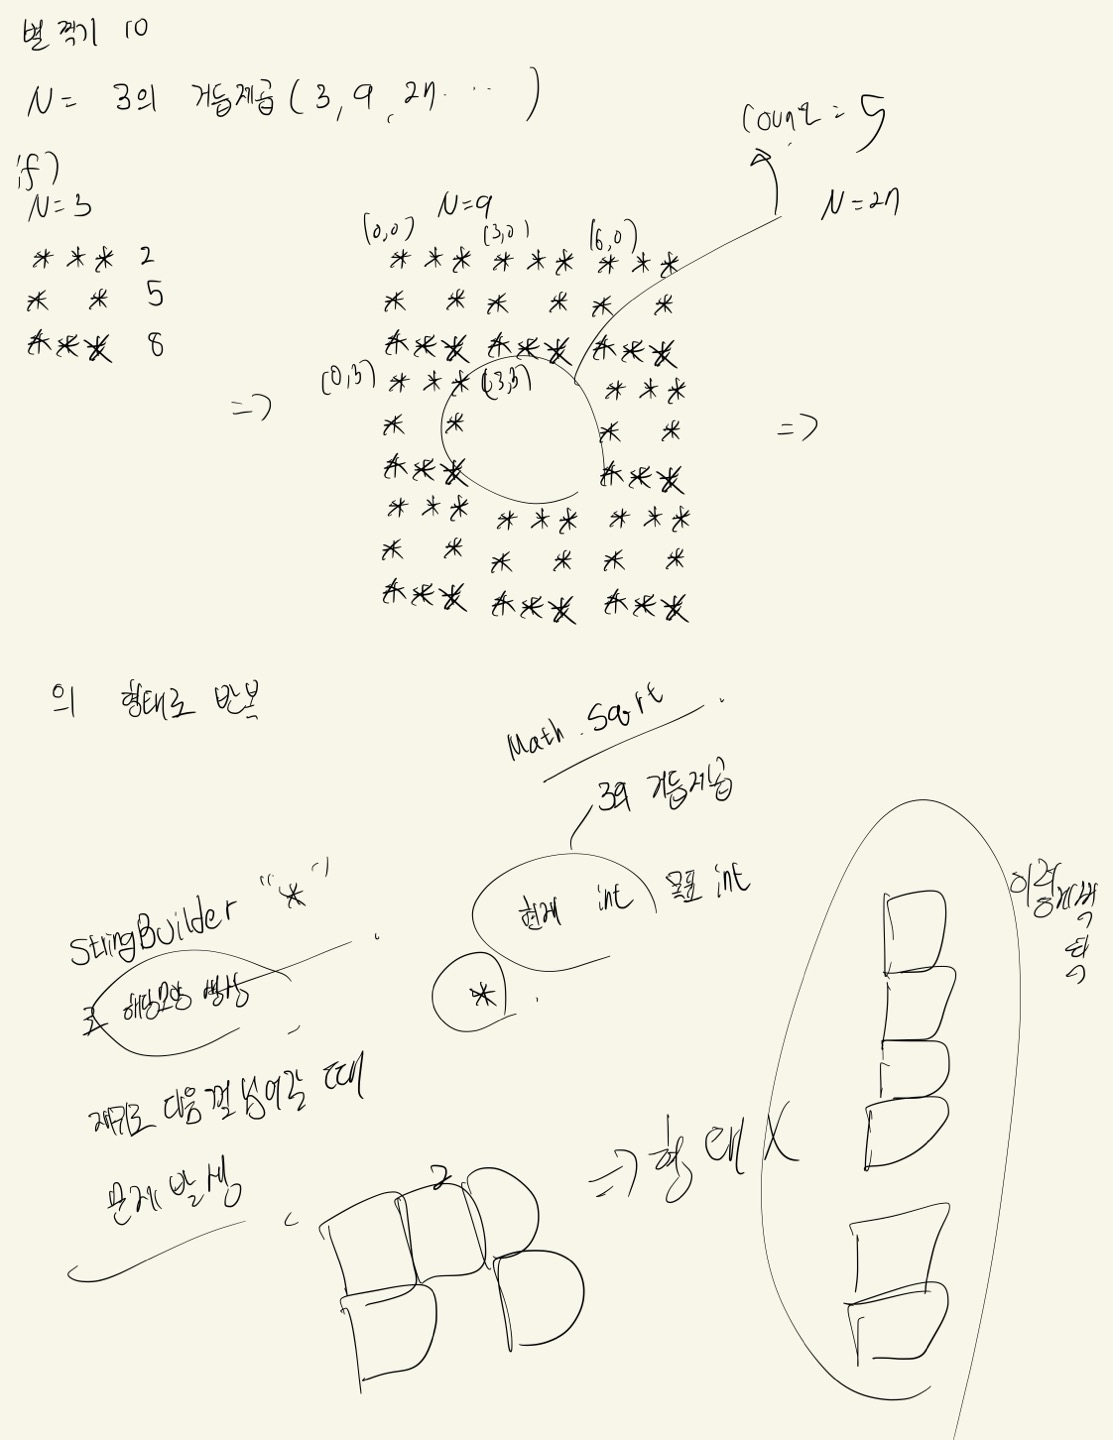 별 찍기 10
N = 3의 거듭제곱 (3, 9, 27 ... )
count = 5
if)
N=3
N=9
N=27
(0,0) (3,0) (6,0)
* * * 2
* * 5
* * * 8
* * * * * * * * *
* * * * * *
* * * * * * * * *
(0,3) * * * (3,3) * * *
* * * *
* * * * * *
* * * * * * * * *
* * * * * *
* * * * * * * * *
=> =>
의 형태로 반복
Math.Sqrt
3의 거듭제곱
현재 int 목표 int
StringBuilder "*"
로 해당모양 생성
*
재귀로 다음껄 넘어갈 때
문제 발생
2
=> 형태 X